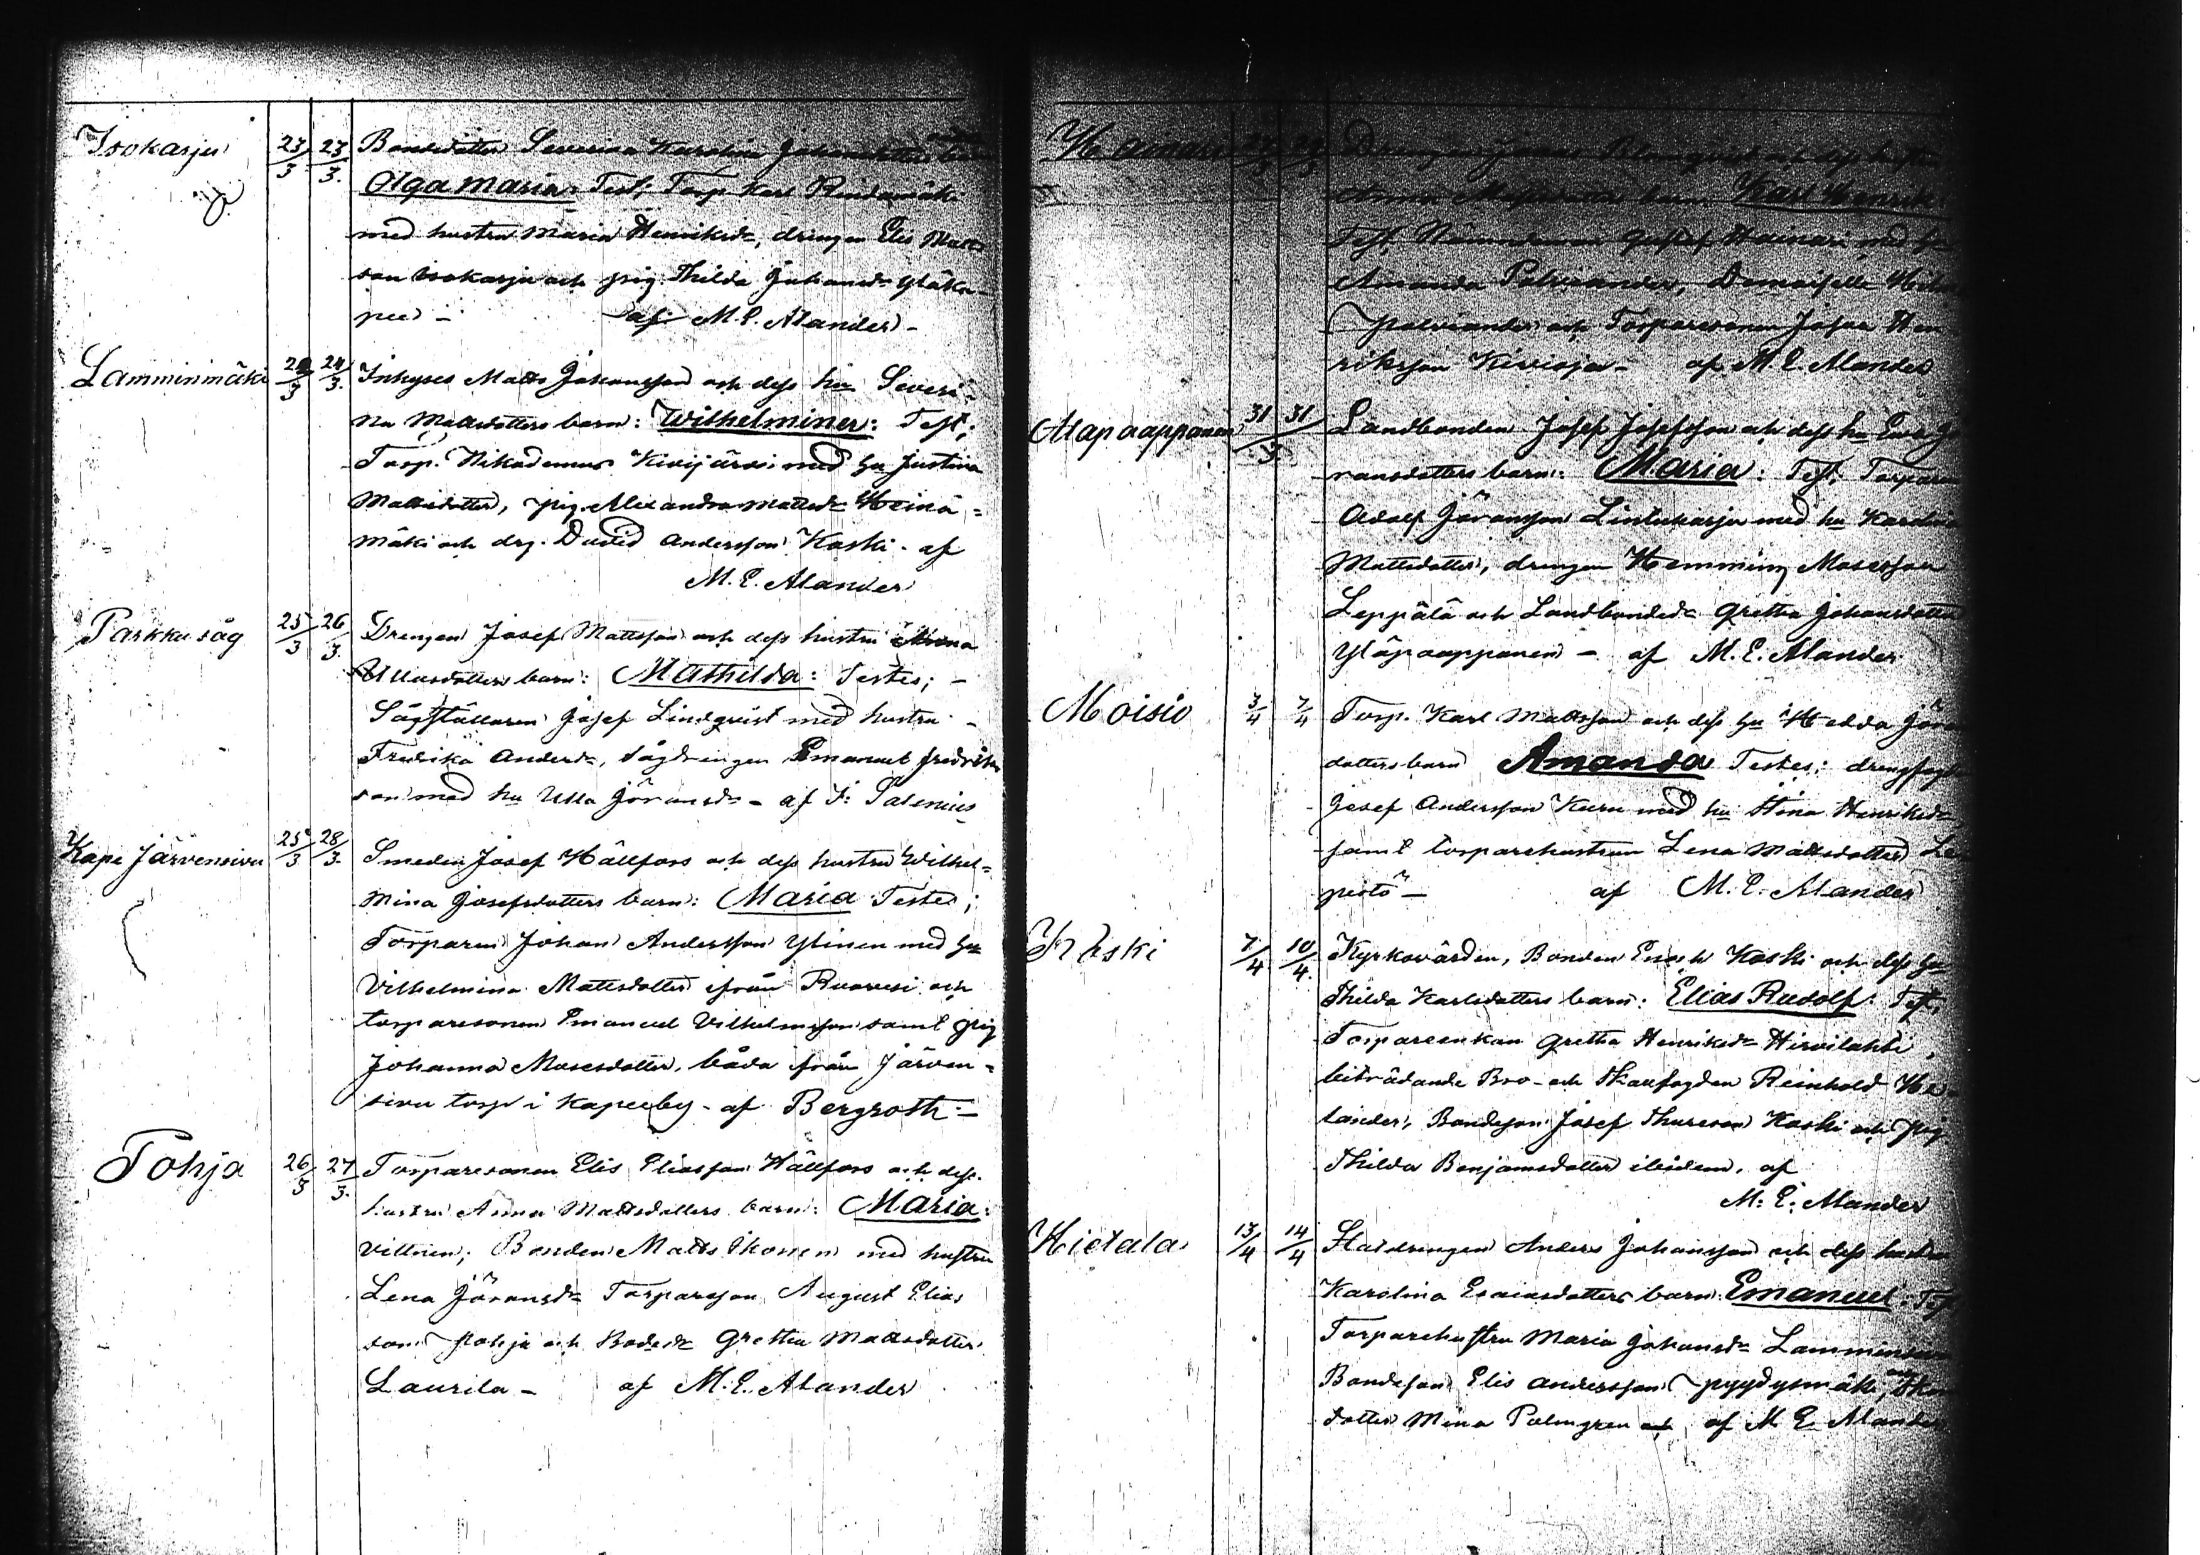 Isokarju 23/3 23/3. Bondedotter Severina Karolina Johansdotters barn
Olga Maria: Test; Torp. Karl Rindamäki
med hustru Maria Henriksdr, drengen Elis Matts
son Isokarju och pig. Thilda Johansdr Yläka-
pee - af M. E. Alander -
Lamminmäki 24/3 24/3. Inhyses Matts Johansson och dess hu Severi-
na Mattsdotters barn: Wilhelmina: Test;
Torp. Nikodemus Kivijärvi med hu Justina
Mattsdotter, pig. Alexandra Mattsdr Heinä=
mäki och drg. David Andersson Koski. af
M. E. Alander
Parkku såg 25/3 26/3. Drengen Josef Mattsson och dess hustru
Ullasdotters barn: Mathilda: Testes; -
Sågställaren Josef Lindqvist med hustru -
Fredrika Andersdr, sågdrengen Emanuel Fredriks
son med hu Ulla Göransdr - af Salenius
Kape Järvensivu 25/3 28/3. Smeden Josef Hällfors och dess hustru Wilhel=
mina Josefsdotters barn: Maria Testes;
Torparen Johan Andersson Ylinen med hu
Vilhelmina Mattsdotter ifrån Ruovesi och
torparesonen Emanuel Vilhelmsson samt pig
Johanna Mosesdotter, båda från Järven=
sivu torp i Kapeeby - af Bergroth -
Pohja 26/3 27/3. Torparesonen Elis Eliasson Hällfors och dess
hustru Anna Mattsdotters barn: Maria:
Vittnen; Bonden Matts Ikonen med hustru
Lena Göransdr Torpareson August Elias
son Pohja och Bodedr Gretha Mattsdotter
Laurila - af M. E. Alander
Drengen Blomqvist och dess hustru
Anna barn Karl Henrik
Test. Nämndeman Gustaf Hainari med hu
Amanda Palviander, Demoiselle
Palviander och Torparesonen Josua Hen
riksson Kivioja - af M. E. Alander
Alapaappanen 31/3 31/3 Landbonden Josef Josefsson och dess hu Eva Gö
ransdotters barn: Maria: Test; Torparen
Adolf Göransson Lintukarju med hu Karolina
Mattsdotter, drengen Hemming Mosesson
Leppälä och Landbondedr Gretha Johansdotter
Yläpaappanen - af M. E. Alander
Moisio 3/4 7/4 Torp. Karl Mattsson och dess hu Hedda Göra
dotters barn Amanda Testes: drengfogden
Josef Andersson Kuru med hu Stina Henriksdr
samt torparehustrun Lena Mattsdotter Le
pistö - af M. E. Alander
Koski 7/4 10/4. Kyrkovärden, Bonden Enoch Koski och dess hu
Thilda Karlsdotters barn: Elias Rudolf: Test;
Torpareenkan Gretha Henriksdr Hirvilahti,
biträdande Bro- och Skallfogden Reinhold He-
lander, Bondeson Josef Thureson Koski och pig
Thilda Benjamsdotter ibidem. af
M. E. Alander
Hietala 13/4 14/4 Statdrengen Anders Johansson och dess hustru
Karolina Esaiasdotters barn: Emanuel: Test
Torparehustru Maria Johansdr Lammin
Bondeson Elis Andersson Pyydysmäki,
dotter Mina Palmgren af M. E. Alander